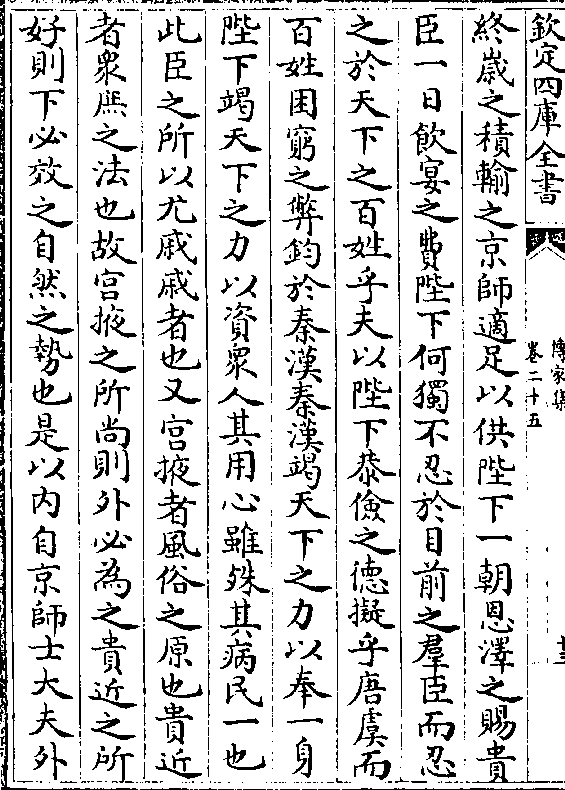 欽定四庫全書
傳家集
卷二十五
十三
終歲之積輸之京師適足以供陛下一朝恩澤之賜貴
臣一日飲宴之費陛下何獨不忍於目前之羣臣而忍
之於天下之百姓乎夫以陛下恭儉之德擬乎唐虞而
百姓困窮之弊鈞於秦漢秦漢竭天下之力以奉一身
陛下竭天下之力以資眾人其用心雖殊其病民一也
此臣之所以尤戚戚者也又宫掖者風俗之原也貴近
者眾庶之法也故宫掖之所尚則外必為之貴近之所
好則下必效之自然之勢也是以内自京師士大夫外